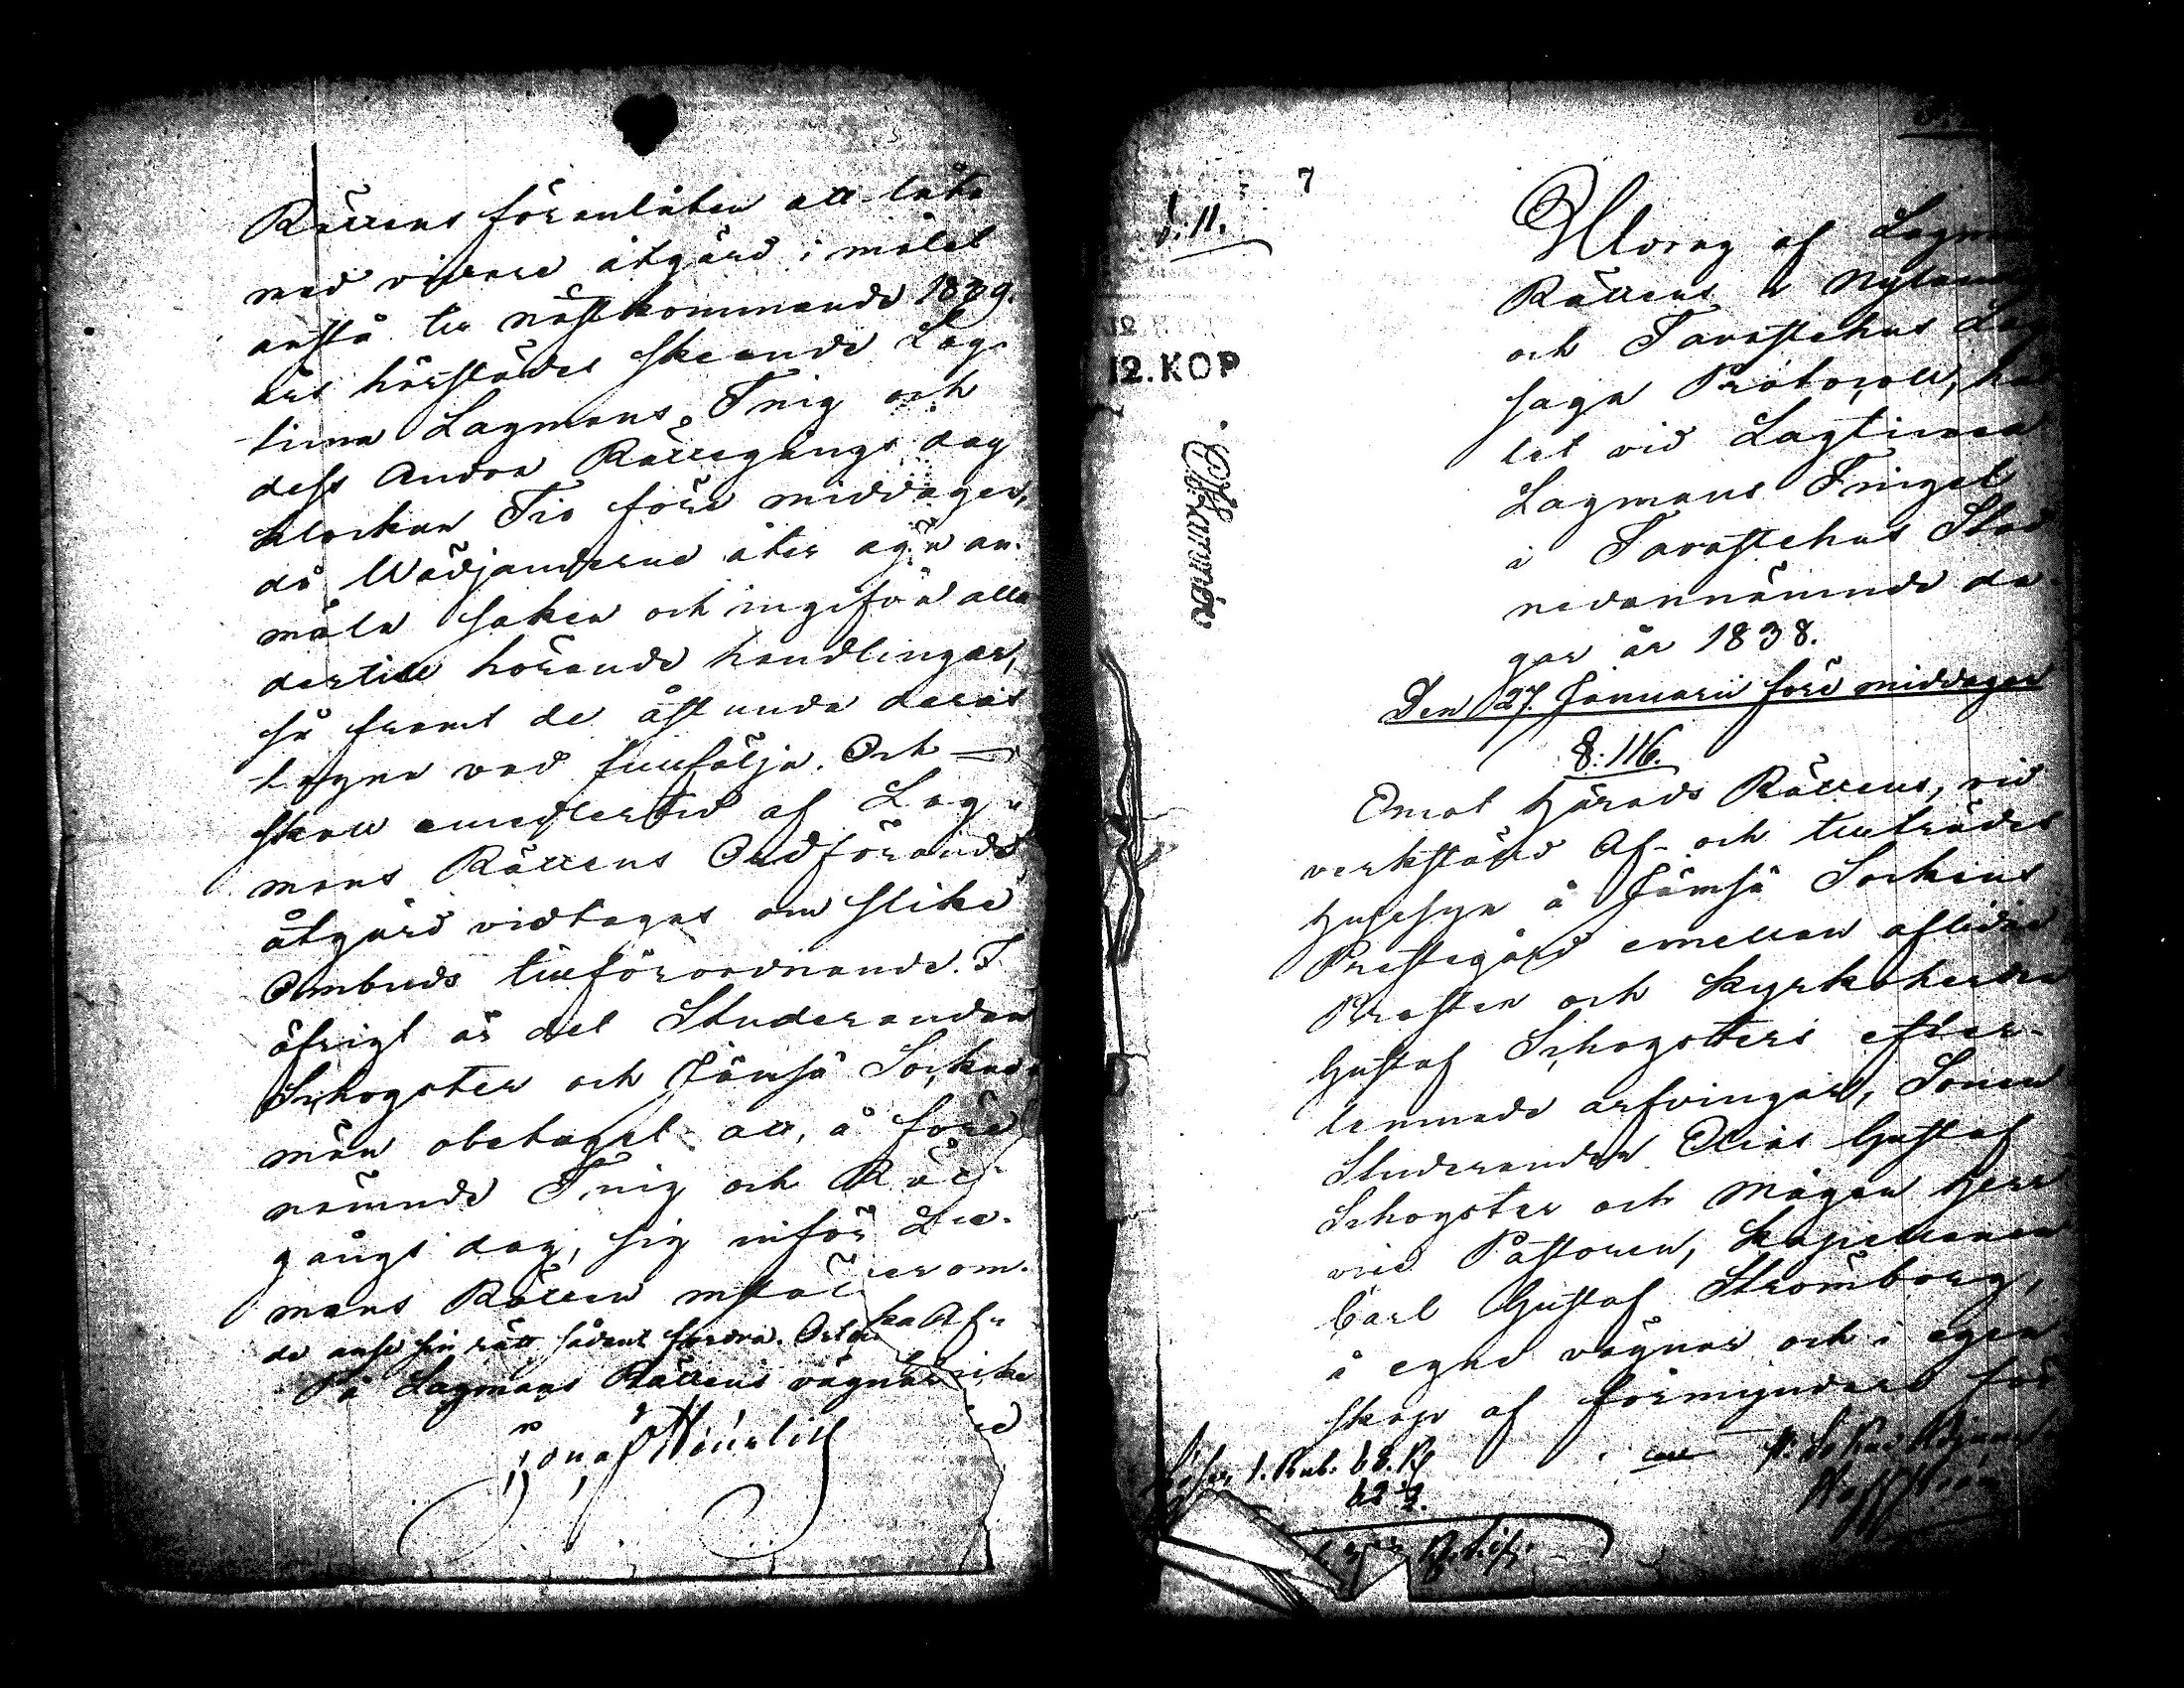 Rättens föranlåten att låta
med vidare åtgärd i målet
anstå till nästkommande 1839.
års härstädes skeende Lag-
tima Lagmans Ting och
dess Andra Rättegångs dag
klockan Tio före middagen,
då Wädjanderne åter äga an-
mäla saken och ingifva alla
dertill hörande handlingar,
så framt de åstunda deras
tagna vad fullfölja. Och
skall emedlertid af Lag-
mans Rättens Ordförande
åtgärd vidtagas om slike
Ombuds tillförordnande. I
öfrigt är det Studeranden
Schogster och Jämsä Sockne-
män obetaget att, å före
nämnde Ting och Rätte-
gångs dag, sig inför
mans Rätten
de anse sin rätt sådant fordra.
På Lagmans Rättens vägnar
7
§. 11.
12. KOP
Utdrag af Lagmans
Rättens i Nylands
och Tavastehus Lag-
saga Protocoll, hål-
let vid Lagtima
Lagmans Tinget
i Tavastehus Stad
nedannämnde da-
gar år 1838.
Den 27. Januarii före middagen
§. 116.
Emot Härads Rättens, vid
verkställd Af- och tillträdes
Husesyn å Jämsä Sockens
Prestegård emellan aflidne
Prosten och Kyrkoherden
Gustaf Schogsters efter-
lemnade arfvingar, Sonen
Studeranden Elias Gustaf
Schogster och Mågen Herr
vice Pastoren, Kapellanen
Carl Gustaf Strömborg,
å egne vägnar och i egen-
skap af förmyndare för